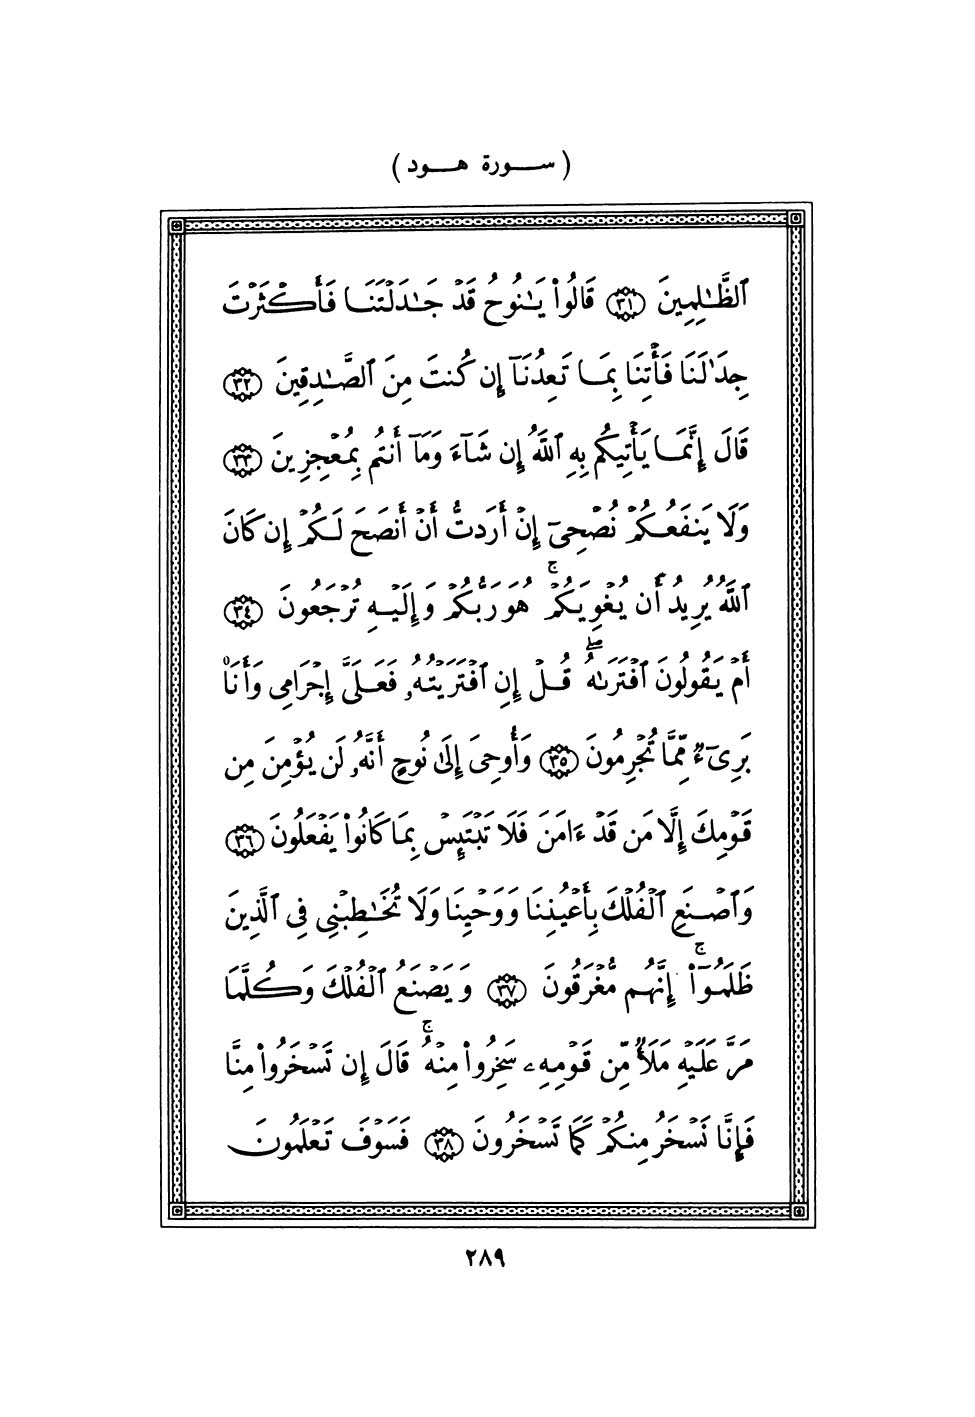 ( ســـورة هـــود )
ٱلظَّـٰلِمِينَ ٣١ قَالُوا۟ يَـٰنُوحُ قَدْ جَـٰدَلْتَنَـا فَأَكْـثَرْتَ
جِدَٰلَنَا فَأْتِنَا بِمَـا تَعِدُنَآ إِن كُنتَ مِنَ ٱلصَّـٰدِقِينَ ٣٢
قَالَ إِنَّمَـا يَأْتِيكُم بِهِ ٱللَّهُ إِن شَآءَ وَمَآ أَنتُم بِمُعْجِزِينَ ٣٣
وَلَا يَنفَعُـكُمْ نُصْحِىٓ إِنْ أَرَدتُّ أَنْ أَنصَحَ لَـكُمْ إِن كَانَ
ٱللَّهُ يُرِيدُ أَن يُغْوِيَكُمْ ۚ هُوَ رَبُّكُمْ وَإِلَيْـهِ تُرْجَعُونَ ٣٤
أَمْ يَقُولُونَ ٱفْتَرَىٰهُ ۖ قُـلْ إِنِ ٱفْتَرَيْتُهُۥ فَعَـلَىَّ إِجْرَامِى وَأَنَا۠
بَرِىٓءٌ مِّمَّا تُجْرِمُونَ ٣٥ وَأُوحِىَ إِلَىٰ نُوحٍ أَنَّهُۥ لَن يُؤْمِنَ مِن
قَوْمِكَ إِلَّا مَن قَدْ ءَامَنَ فَلَا تَبْتَئِسْ بِمَا كَانُوا۟ يَفْعَلُونَ ٣٦
وَٱصْـنَعِ ٱلْفُلْكَ بِأَعْيُنِنَا وَوَحْيِنَا وَلَا تُخَـٰطِبْنِى فِى ٱلَّذِينَ
ظَلَمُوٓا۟ ۚ إِنَّهُم مُّغْرَقُونَ ٣٧ وَيَصْنَعُ ٱلْفُلْكَ وَكُلَّمَا
مَرَّ عَلَيْهِ مَلَأٌ مِّن قَوْمِهِۦ سَخِرُوا۟ مِنْهُ ۚ قَالَ إِن تَسْخَرُوا۟ مِنَّا
فَإِنَّا نَسْخَرُ مِنكُمْ كَمَا تَسْخَرُونَ ٣٨ فَسَوْفَ تَعْلَمُونَ
٢٨٩